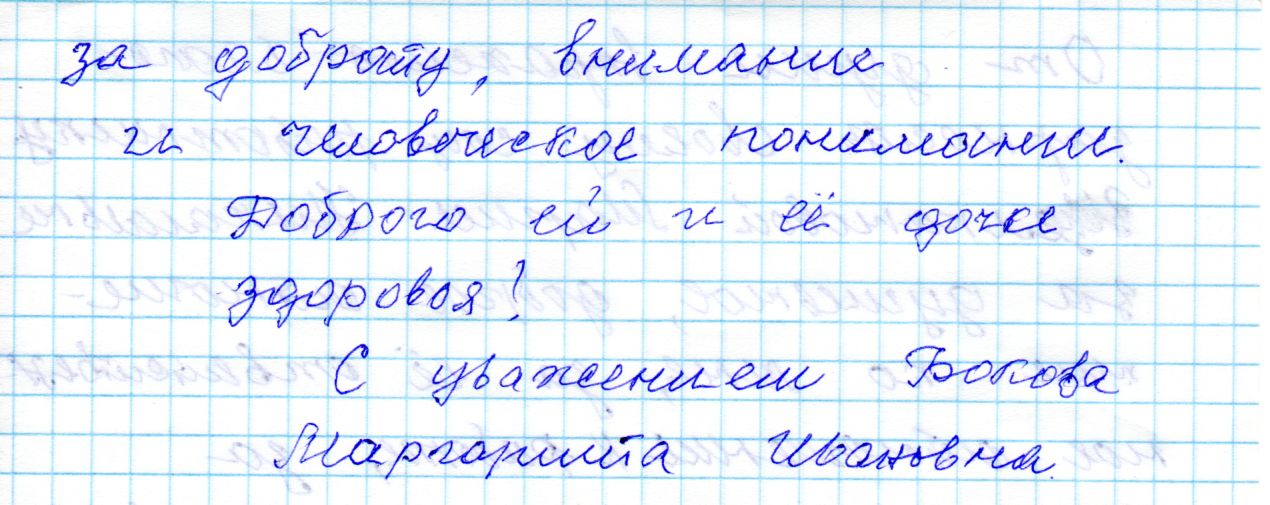 за доброту, внимание
и человеческое понимание.
Доброго ей и её дочке
здоровья!
С уважением Бокова
Маргарита Ивановна.